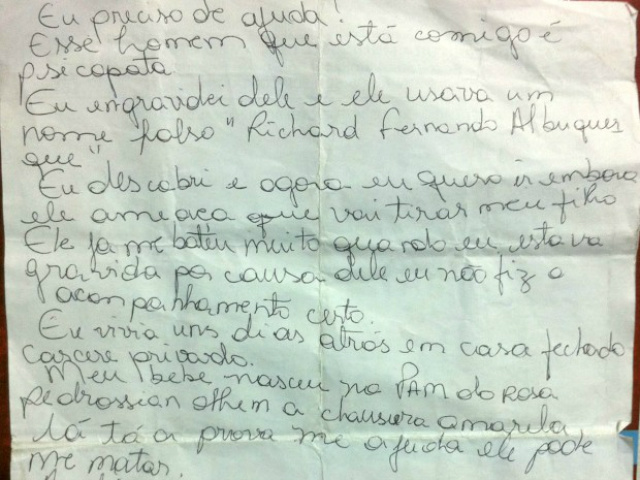 Eu preciso de ajuda!
Esse homem que está comigo é
psicopata
Eu engravidei dele e ele usava um
nome falso "Richard Fernando Albuquer
que"
Eu descobri e agora eu quero ir embora
ele ameaça que vai tirar meu filho
Ele ja me bateu muito quando eu estava
gravida por causa dele eu não fiz o
acompanhamento certo.
Eu vivia uns dias atrás em casa fechado
carcere privado.
Meu bebe nasceu no PAM do Rosa
Pedrossian olhem a amarela
lá tá a prova me ajuda ele pode
me matar.